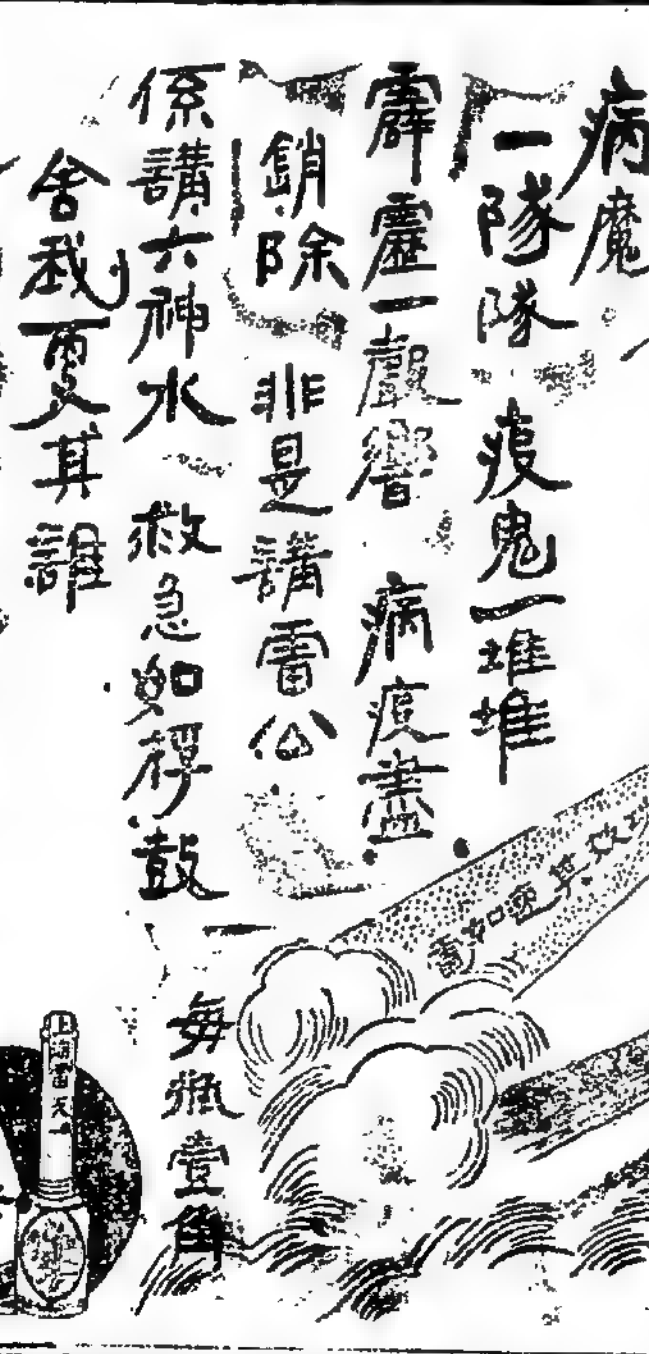 病魔
一隊隊 疫鬼一堆堆
霹靂一聲響 病疫盡
銷除 非是講雷公
係講六神水 救急如桴鼓
舍我更其誰
每瓶壹角
效其速如雷
上海雷天一